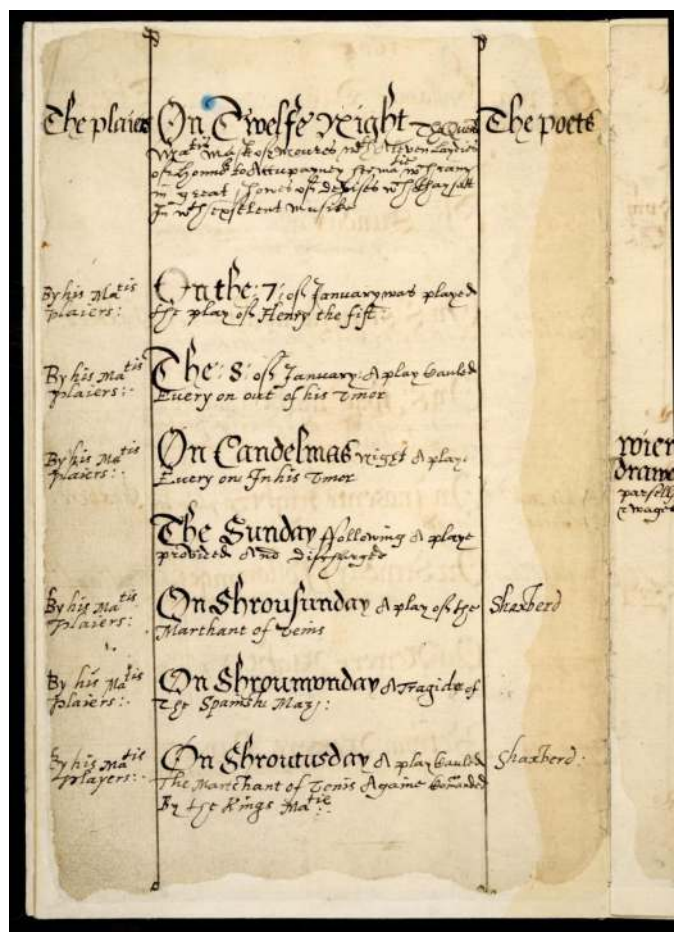 The plaiers
On Twelfe Night The Queens
The poets
Ma:tis Maske of Moures wth Aleven Laydies
of honnor to accupayney her matie wch cam
in great showes of devises wch thay satt
In wth exselent musike
By his Matis
plaiers:
On the : 7 : of January was played
the play of Henry the fift
By his Matis
plaiers:
The : 8 : of January: A play cauled
Every on out of his Umor
By his Matis
plaiers:
On Candelmas night A playe
Every on In his Umor
The Sunday ffollowing A playe
provided And discharged
By his Matis
plaiers:
On Shrousunday A play of the
Marthant of Venis
Shaxberd
By his Matis
plaiers:
On Shroumonday A Tragidye of
The Spanishe Maz:
By his Matis
players:
On Shroutusday A play cauled
The Martchant of Venis Againe Comanded
By the Kings Matie
Shaxberd:
wier
drawe